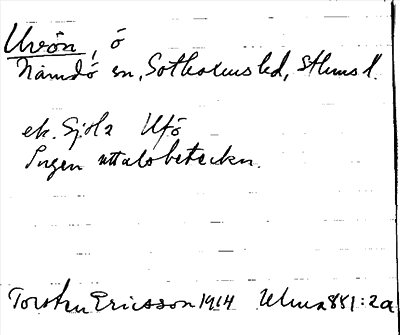 Uvön, ö
Nämdö sn, Sotholms hd, Sthms l.
ek. Sjökz Ufö
Ingen uttalsbeteckn.
Torsten Ericsson 1914 Ulma 881:2a